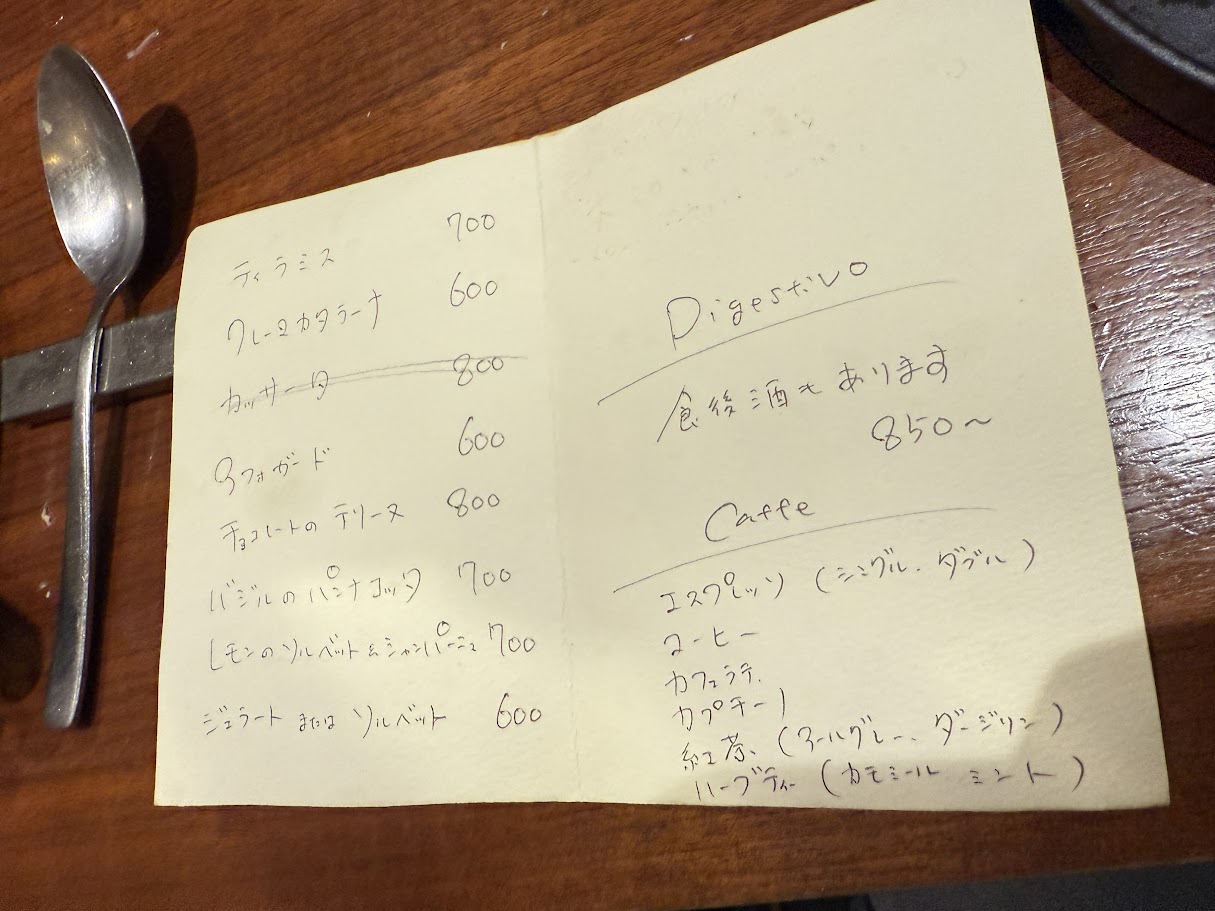 ティラミス 700
クレーマカタラーナ 600
カッサータ 800
アフォガード 600
チョコレートの テリーヌ 800
バジルの パンナコッタ 700
レモンのソルベット&シャンパーニュ 700
ジェラート または ソルベット 600
Digestivo
食後酒も あります
850～
Caffe
エスプレッソ (シングル、ダブル)
コーヒー
カフェラテ
カプチーノ
紅茶 (アールグレー、ダージリン)
ハーブティー (カモミール ミント)